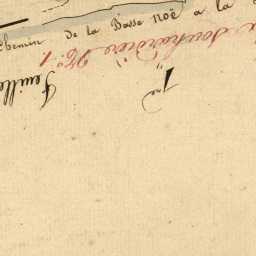 Chemin de la Basse Noë a la
Souhardière N.º 1.
Feuille
1.re